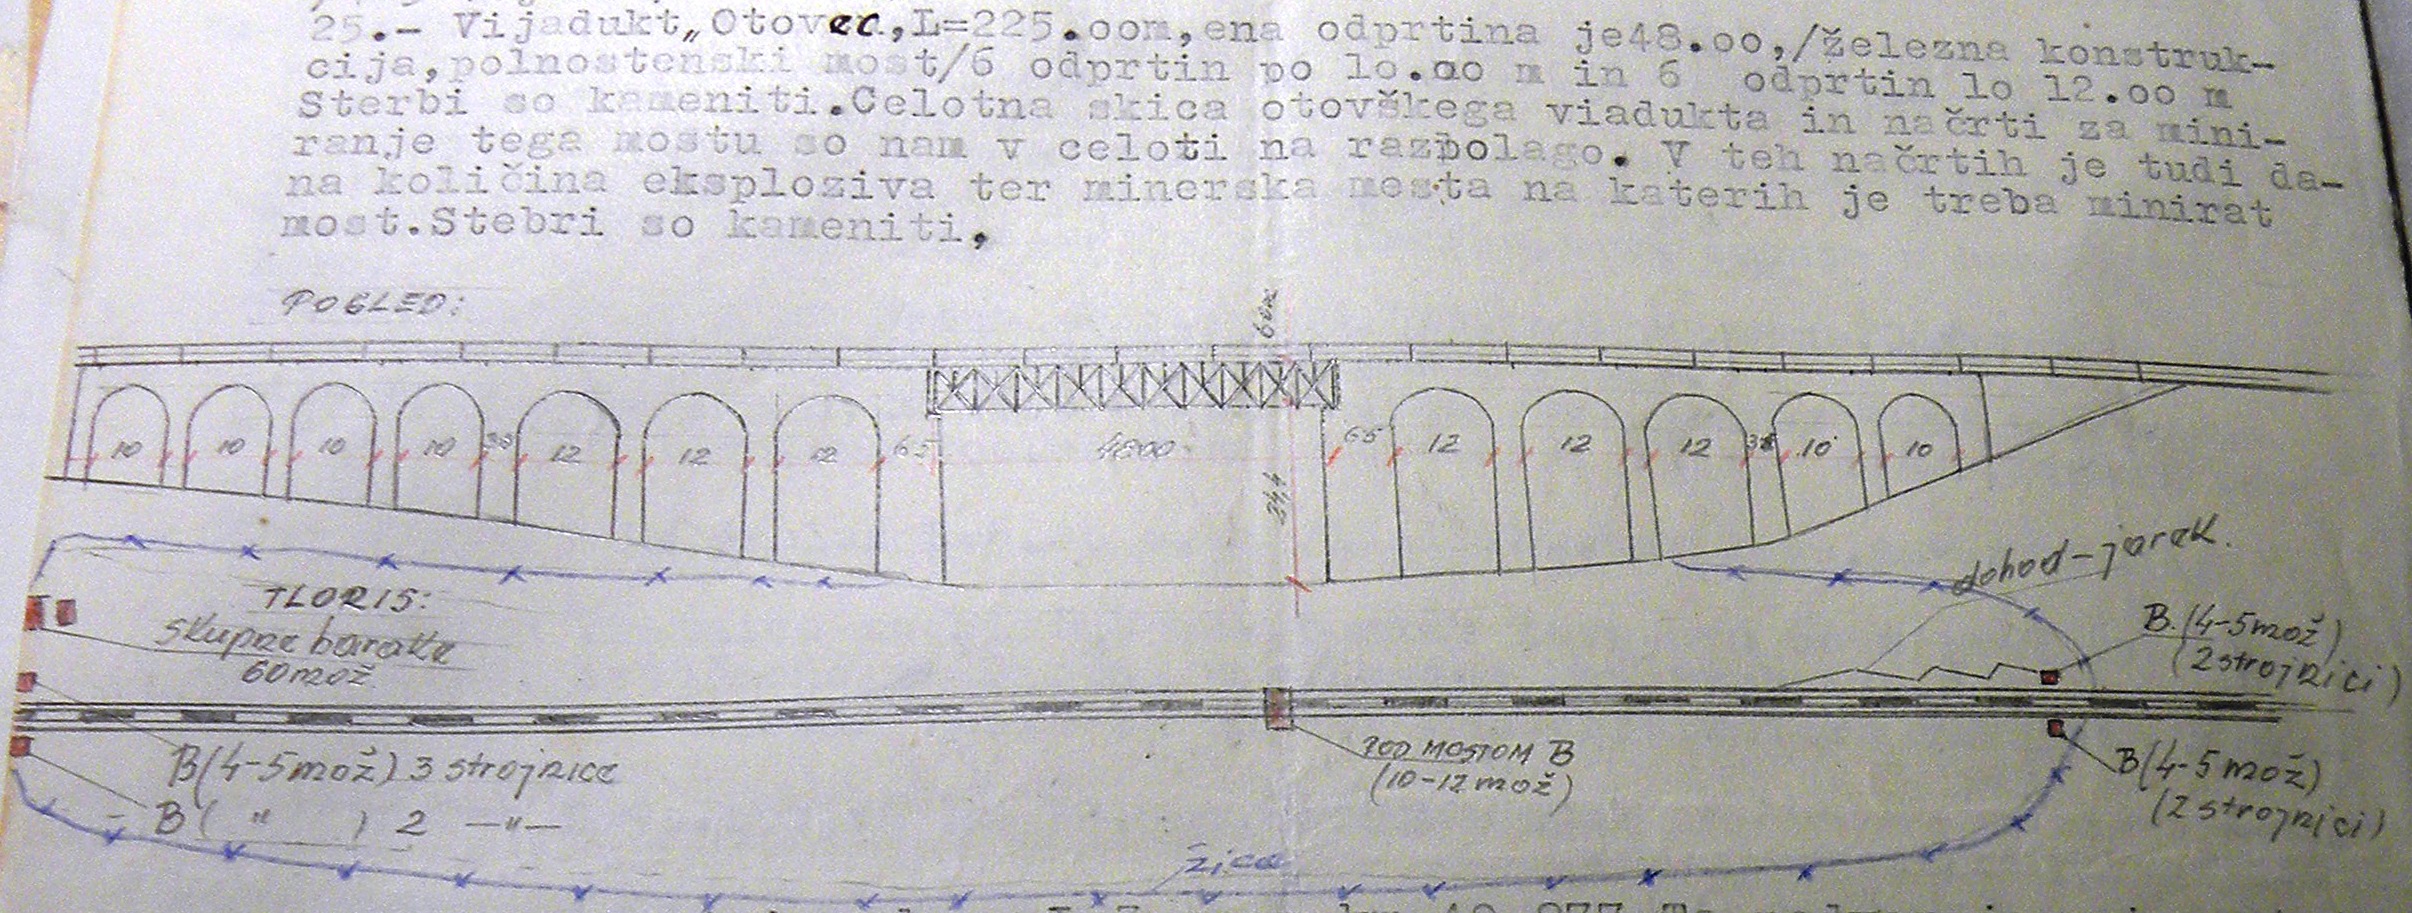 25.- Vijadukt„Otovec,L=225.oom,ena odprtina je48.oo,/železna konstruk-
cija,polnostenski most/6 odprtin po lo.oo m in 6 odprtin lo 12.oo m
Sterbi so kameniti.Celotna skica otovškega viadukta in načrti za mini-
ranje tega mostu so nam v celoti na razpolago. V teh načrtih je tudi da-
na količina eksploziva ter minerska mesta na katerih je treba minirat
most.Stebri so kameniti,
POGLED:
6m
10 10 10 10 35 12 12 12 65 4800 65 12 12 12 38 10 10
34,4
dohod-jarek.
TLORIS:
Skupne barake
60 mož
B.(4-5mož)
(2 strojnici)
B(4-5mož) 3 strojnice
B( " ) 2 —"—
POD MOSTOM B
(10-12 mož)
B(4-5 mož)
(2 strojnici)
žica